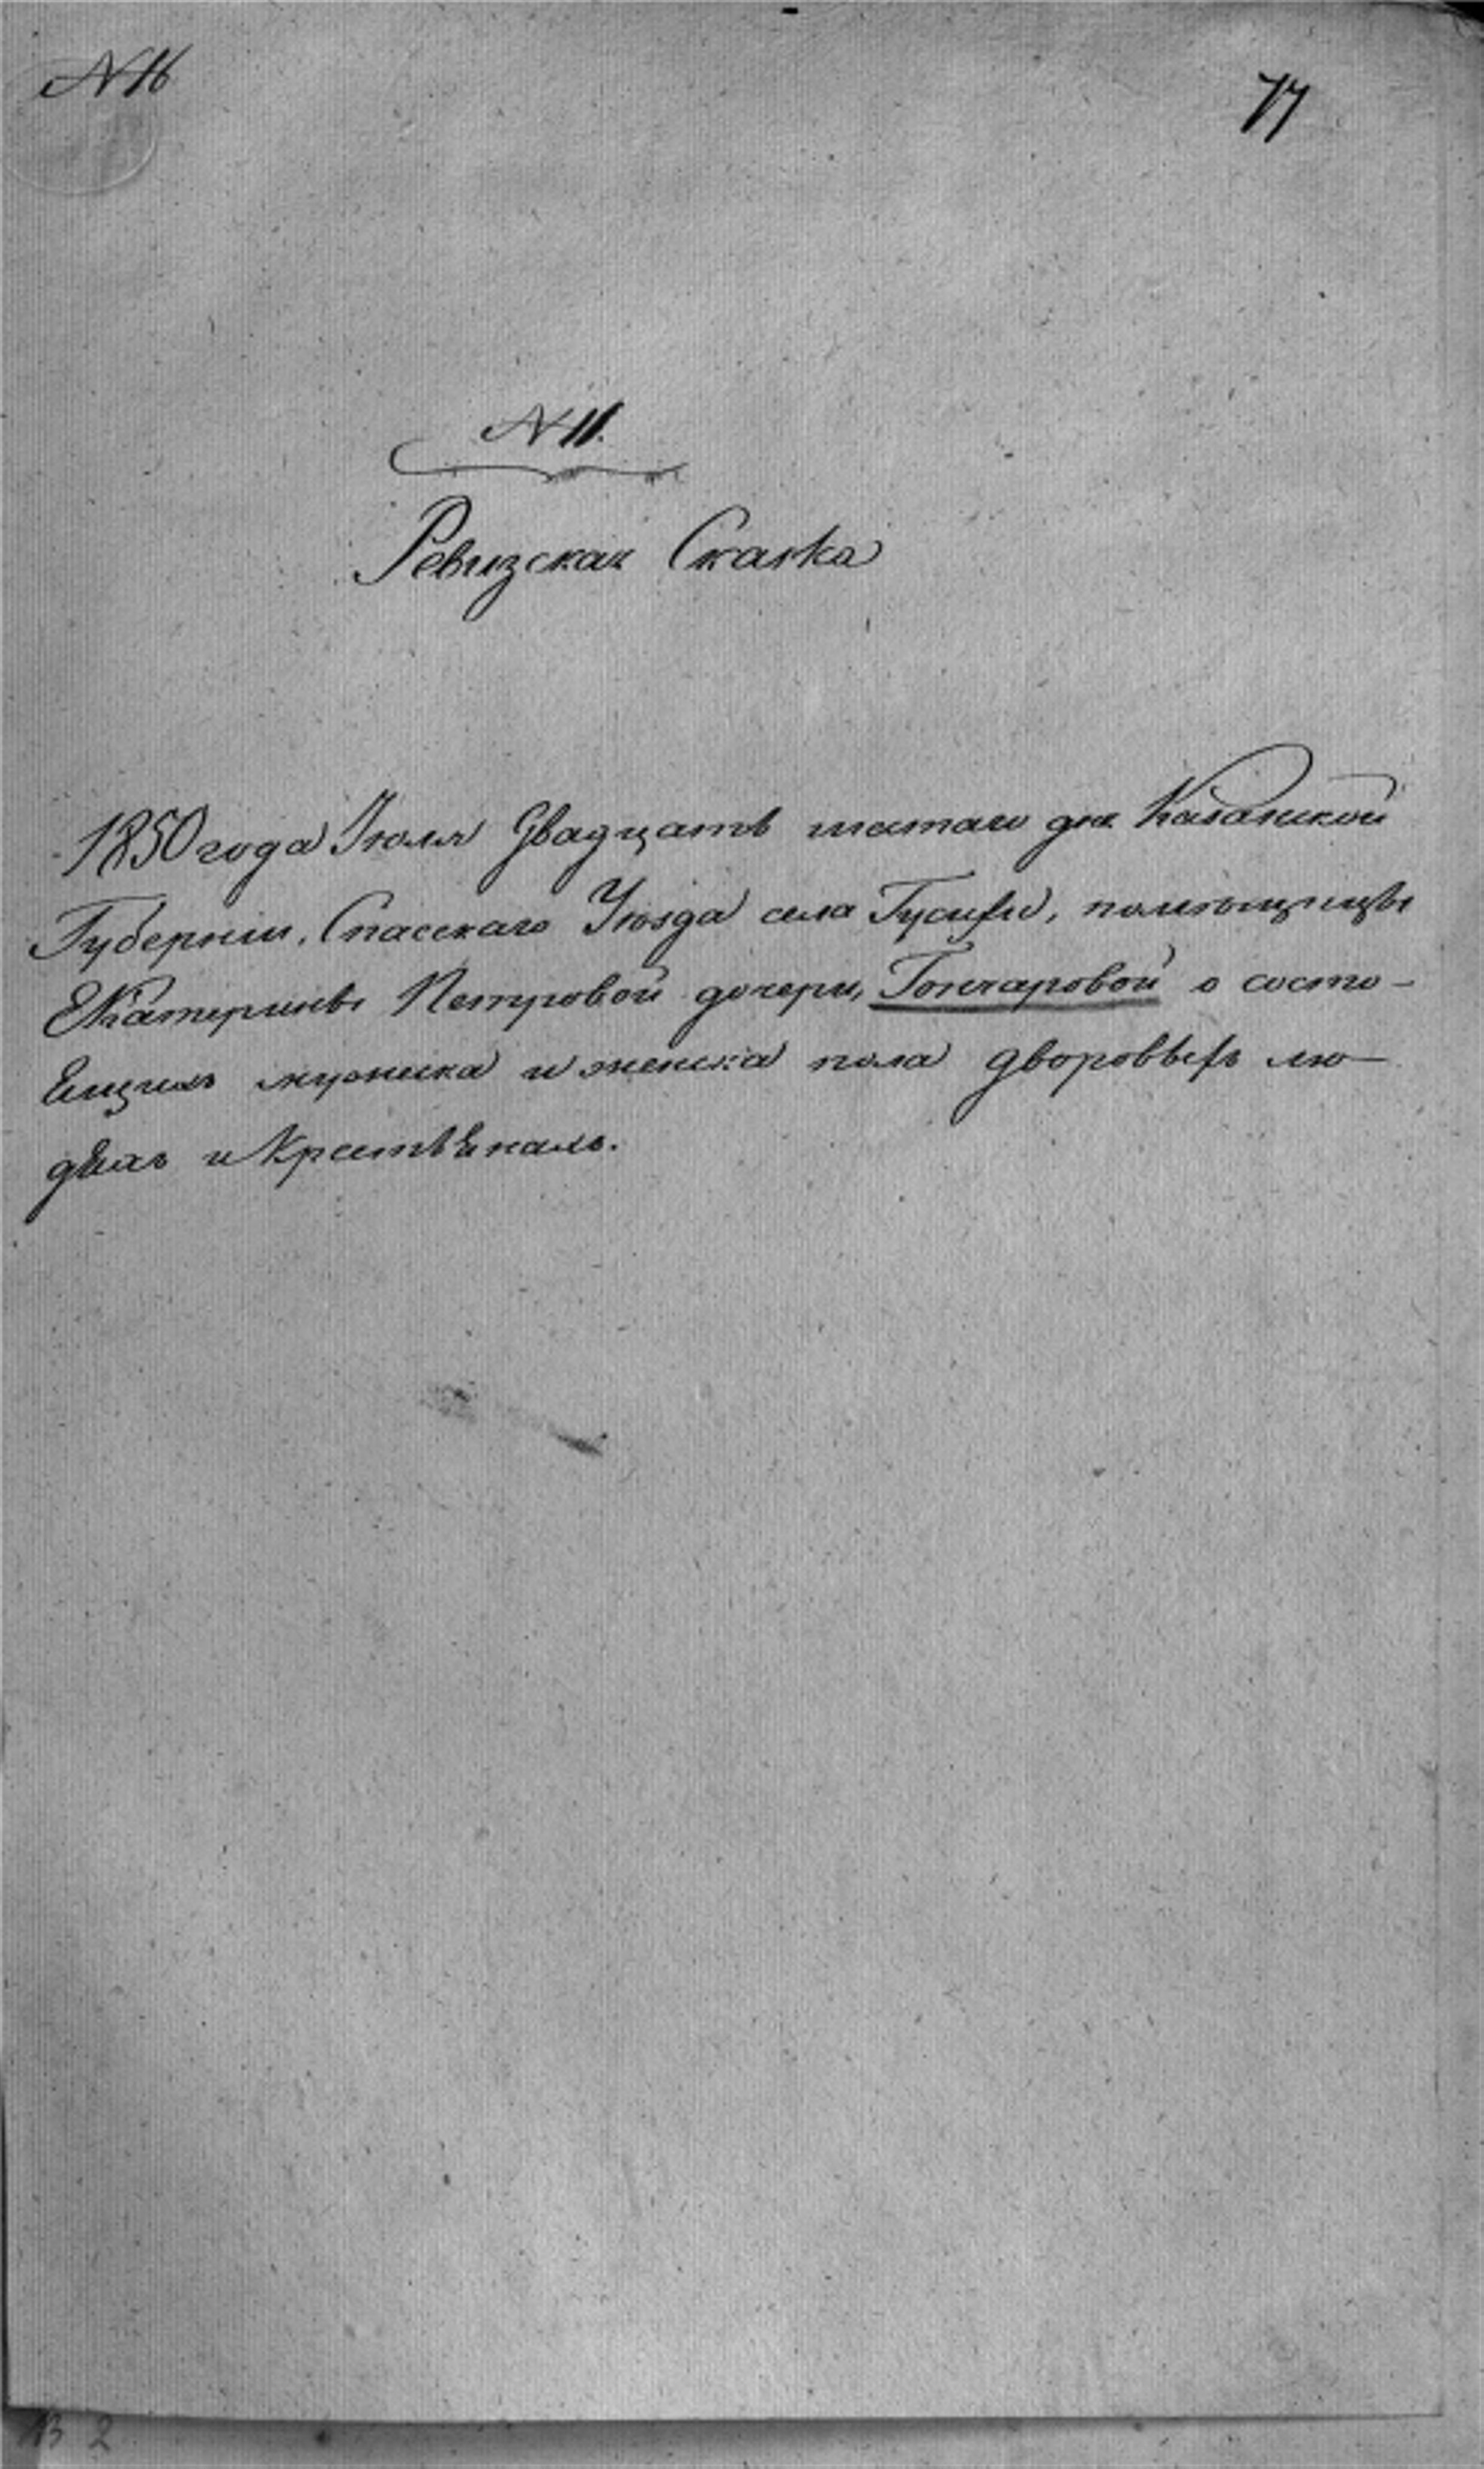 N 16
77
N 11.
Ревизская Сказка
1850 года Июля Двадцать шестаго дня Казанской
Губернии, Спасскаго Уѣзда села Гусихи, помѣщицы
Екатерины Петровой дочери, Гончаровой о состо-
ящихъ мужеска и женска пола дворовыхъ лю-
дяхъ и Крестьянахъ.